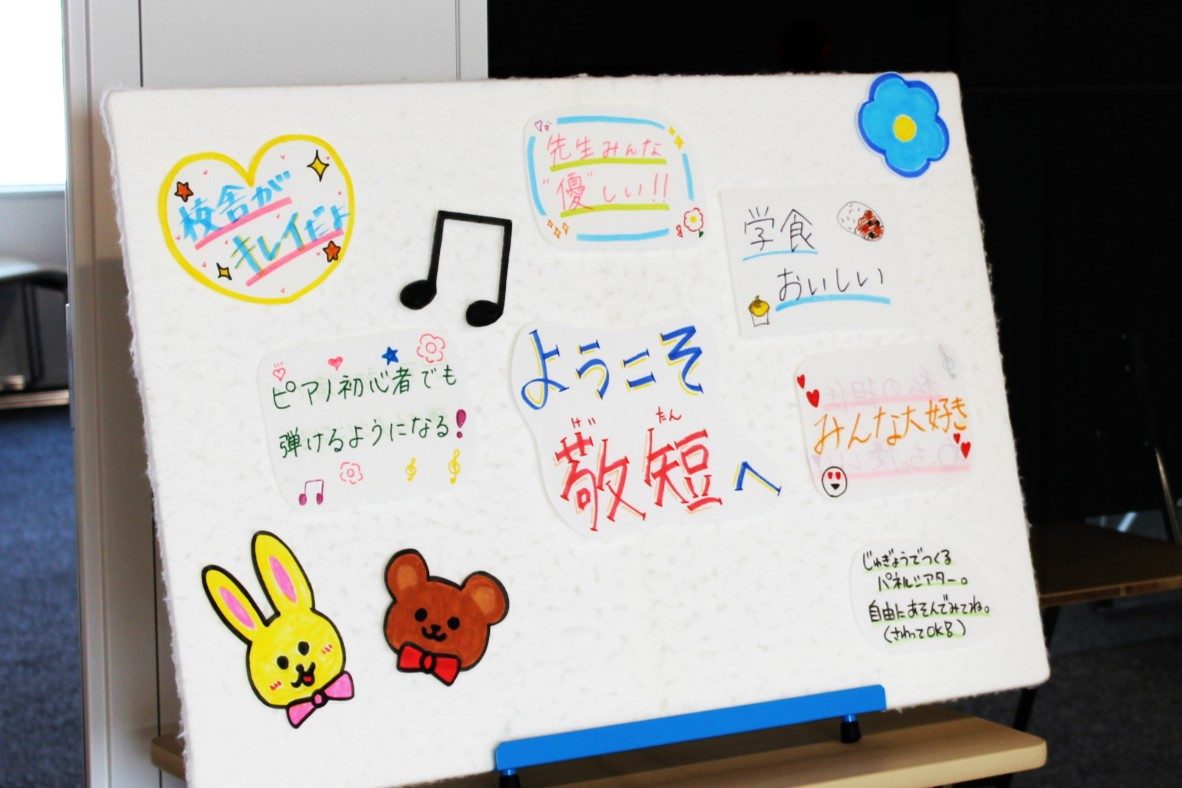 校舎が
キレイだよ
先生みんな
"優"しい!!
学食
おいしい
ピアノ初心者でも
弾けるようになる!
ようこそ
たん
敬短へ
みんな大好き
じゅぎょうでつくる
パネルシアター。
自由にあそんでみてね。
(さわってOK)